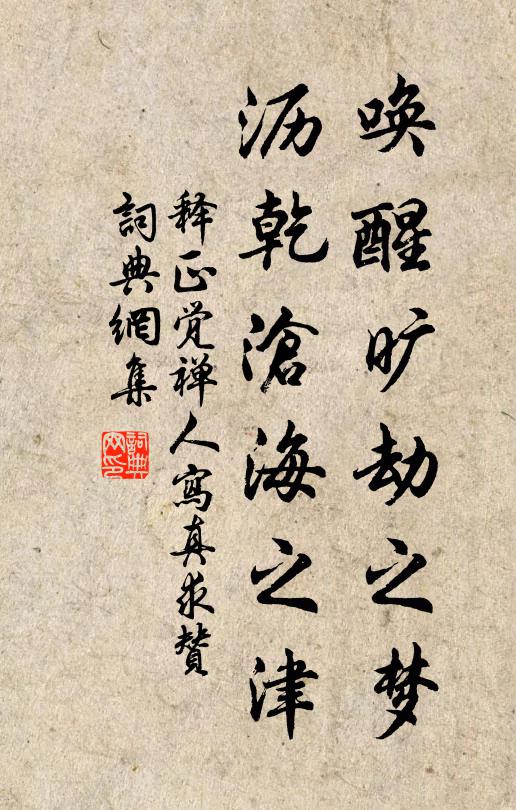 唤醒旷劫之梦
沥乾滄海之津
释正觉禅人寫真求贊
詞典網集
詞典
网印